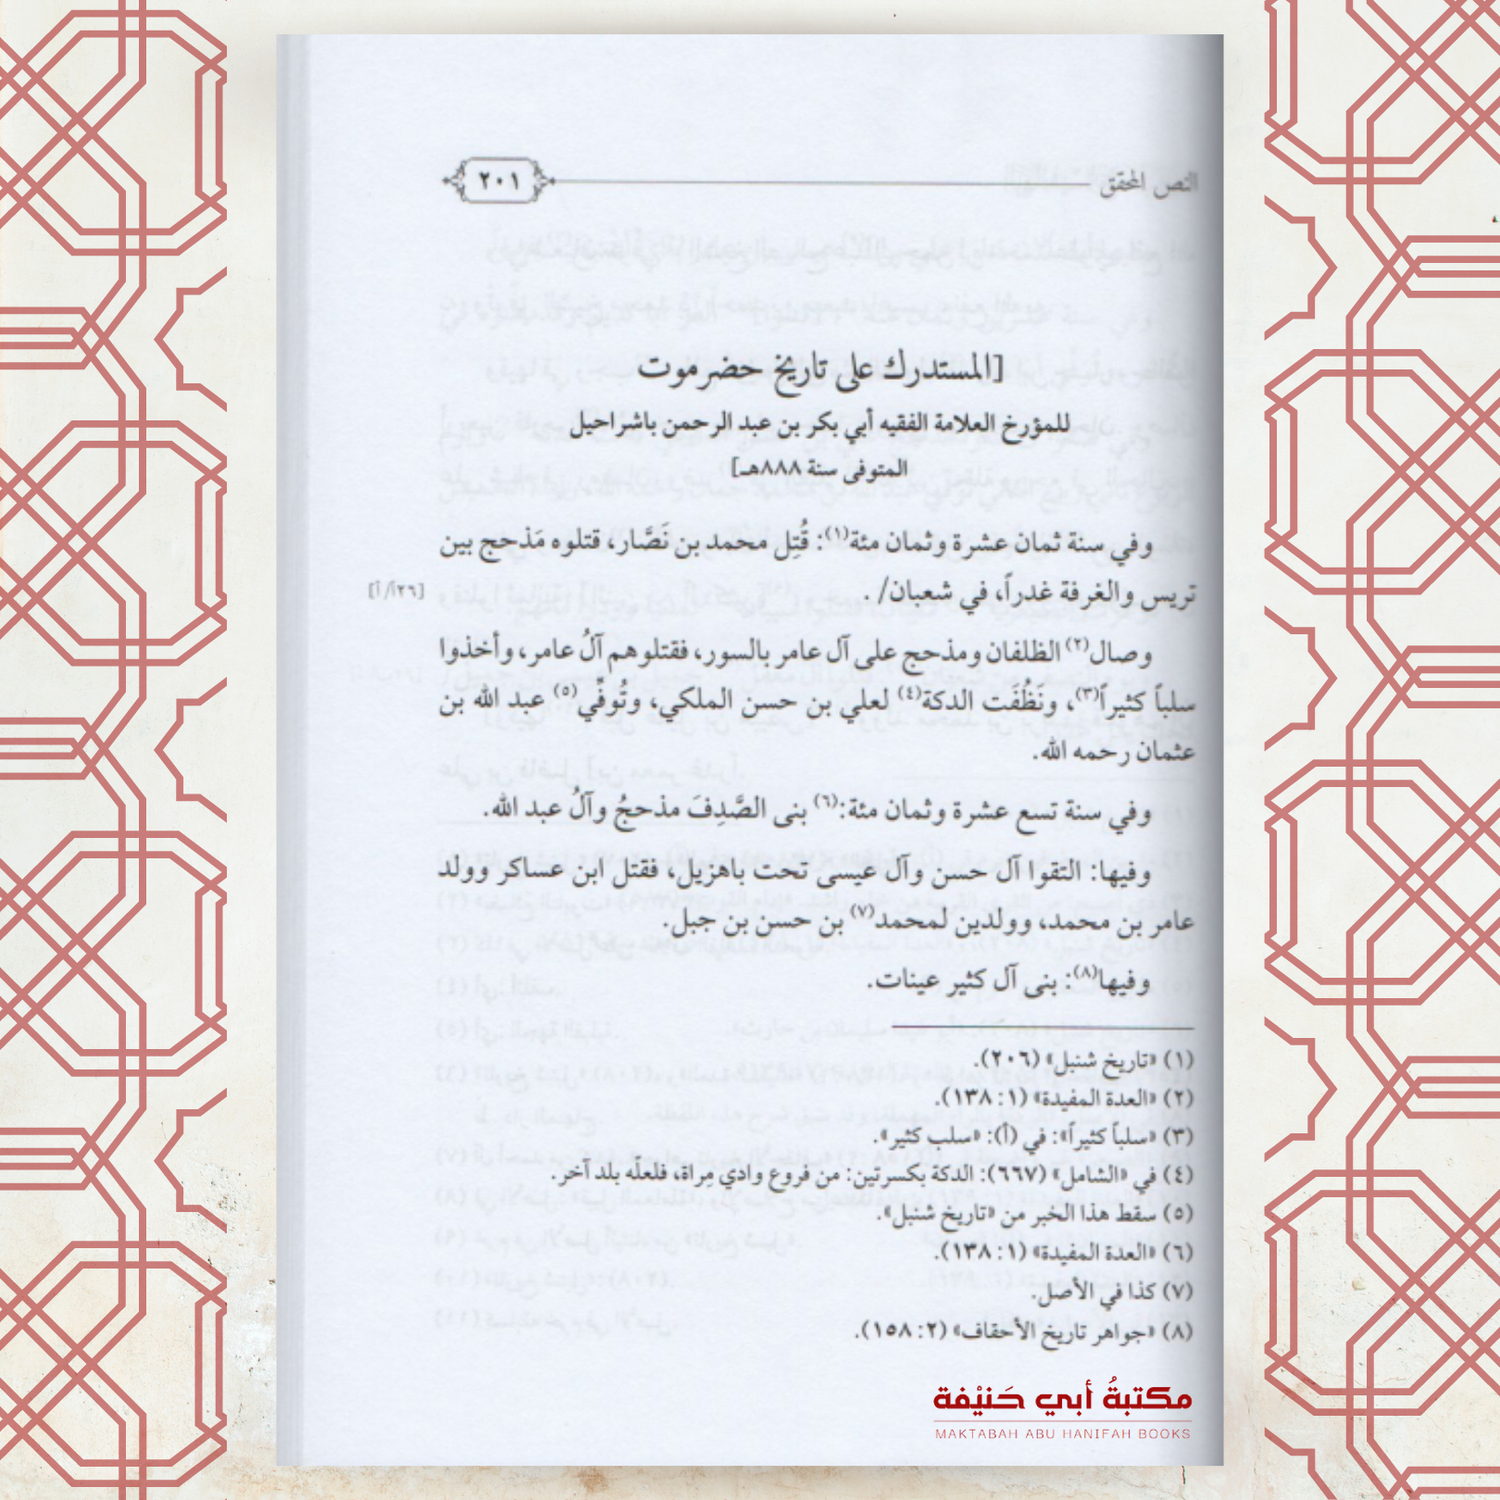 النص المحقق
٢٠١
[المستدرك على تاريخ حضرموت
للمؤرخ العلامة الفقيه أبي بكر بن عبد الرحمن باشراحيل
المتوفى سنة ٨٨٨هـ]
وفي سنة ثمان عشرة وثمان مئة(١): قُتِل محمد بن نَصَّار، قتلوه مَذحج بين
تريس والغرفة غدراً، في شعبان/ .
[٢٦/أ]
وصال(٢) الظلفان ومذحج على آل عامر بالسور، فقتلوهم آلُ عامر، وأخذوا
سلباً كثيراً(٣)، ونَظُفَت الدكة(٤) لعلي بن حسن الملكي، وتُوفِّي(٥) عبد الله بن
عثمان رحمه الله.
وفي سنة تسع عشرة وثمان مئة:(٦) بنى الصَّدِفَ مذحجُ وآلُ عبد الله.
وفيها: التقوا آل حسن وآل عيسى تحت باهزيل، فقتل ابن عساكر وولد
عامر بن محمد، وولدين لمحمد(٧) بن حسن بن جبل.
وفيها(٨): بنى آل كثير عينات.
(١) «تاريخ شنبل» (٢٠٦).
(٢) «العدة المفيدة» (١: ١٣٨).
(٣) «سلباً كثيراً»: في (أ): «سلب كثير».
(٤) في «الشامل» (٦٦٧): الدكة بكسرتين: من فروع وادي مِراة، فلعلّه بلد آخر.
(٥) سقط هذا الخبر من «تاريخ شنبل».
(٦) «العدة المفيدة» (١: ١٣٨).
(٧) كذا في الأصل.
(٨) «جواهر تاريخ الأحقاف» (٢: ١٥٨).
مكتبةُ أبي حَنيْفة
MAKTABAH ABU HANIFAH BOOKS